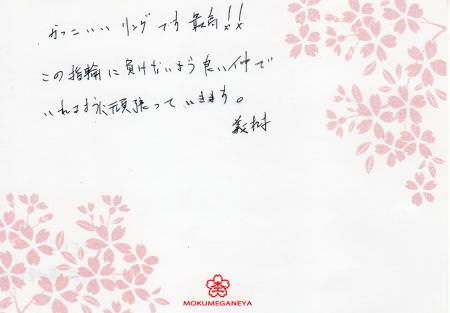 かっこいいリングです 最高!!
この指輪に負けないよう良い仲で
いれるように頑張っていきます。
義樹
MOKUMEGANEYA